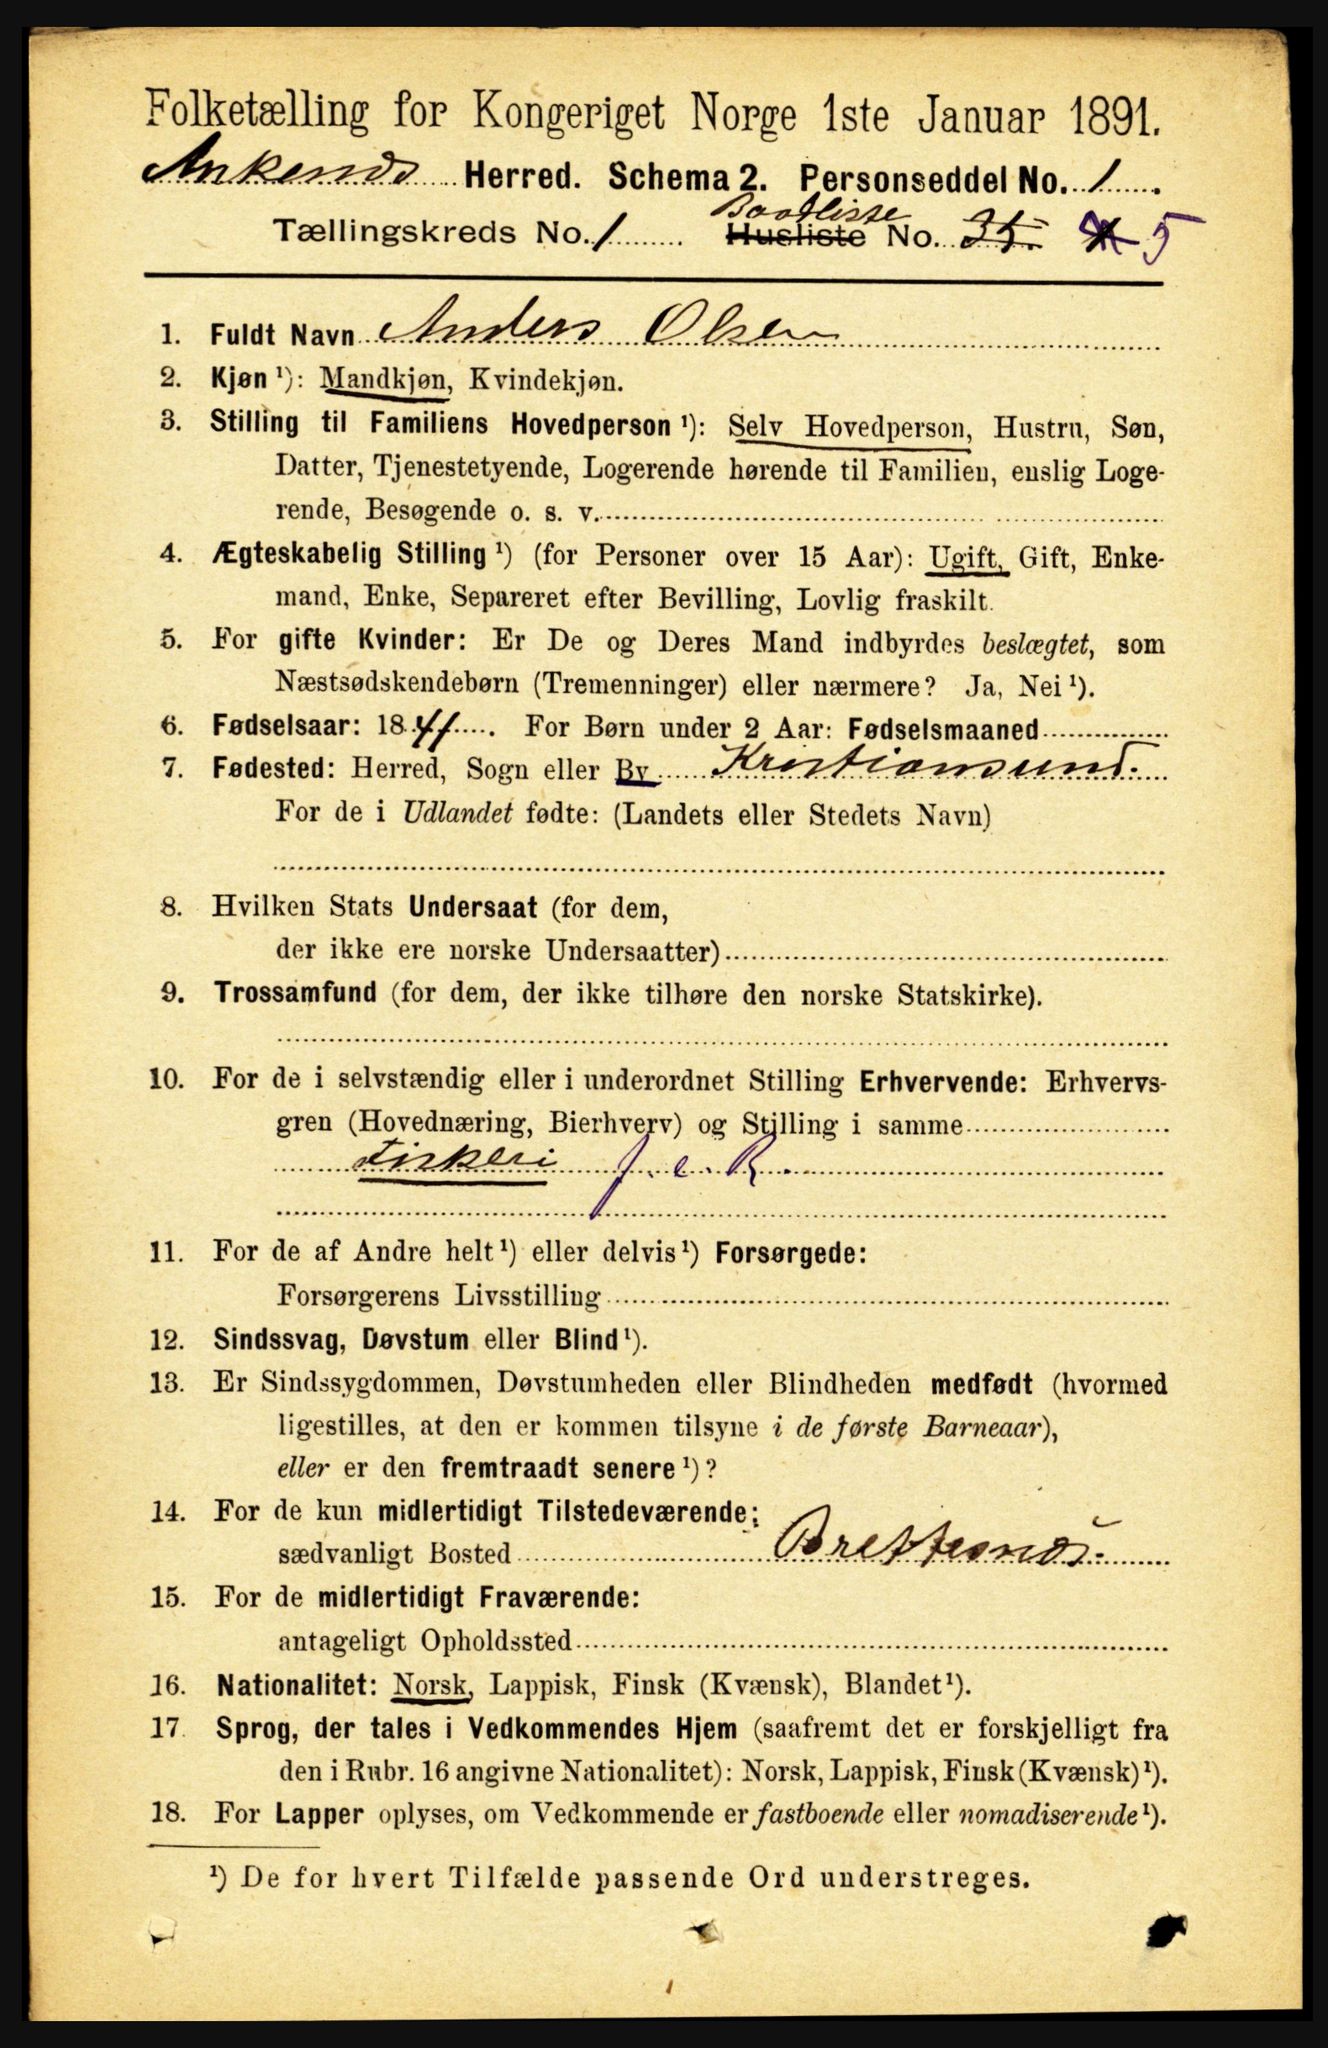 Folketælling for Kongeriget Norge 1ste Januar 1891.
Ankenæs Herred. Schema 2. Personseddel No. 1
Baadliste
Tællingskreds No. 1 Husliste No. 35. 5
1. Fuldt Navn Anders Olsen
2. Kjøn ¹): Mandkjøn, Kvindekjøn.
3. Stilling til Familiens Hovedperson ¹): Selv Hovedperson, Hustru, Søn,
Datter, Tjenestetyende, Logerende hørende til Familien, enslig Loge-
rende, Besøgende o. s. v.
4. Ægteskabelig Stilling ¹) (for Personer over 15 Aar): Ugift, Gift, Enke-
mand, Enke, Separeret efter Bevilling, Lovlig fraskilt.
5. For gifte Kvinder: Er De og Deres Mand indbyrdes beslægtet, som
Næstsødskendebørn (Tremenninger) eller nærmere? Ja, Nei ¹).
6. Fødselsaar: 1841. For Børn under 2 Aar: Fødselsmaaned
7. Fødested: Herred, Sogn eller By Kristiansund.
For de i Udlandet fødte: (Landets eller Stedets Navn)
8. Hvilken Stats Undersaat (for dem,
der ikke ere norske Undersaatter)
9. Trossamfund (for dem, der ikke tilhøre den norske Statskirke).
10. For de i selvstændig eller i underordnet Stilling Erhvervende: Erhvervs-
gren (Hovednæring, Bierhverv) og Stilling i samme
Fiskeri f. e. R.
11. For de af Andre helt ¹) eller delvis ¹) Forsørgede:
Forsørgerens Livsstilling
12. Sindssvag, Døvstum eller Blind ¹).
13. Er Sindssygdommen, Døvstumheden eller Blindheden medfødt (hvormed
ligestilles, at den er kommen tilsyne i de første Barneaar),
eller er den fremtraadt senere ¹)?
14. For de kun midlertidigt Tilstedeværende:
sædvanligt Bosted Brettesnæs.
15. For de midlertidigt Fraværende:
antageligt Opholdssted
16. Nationalitet: Norsk, Lappisk, Finsk (Kvænsk), Blandet ¹).
17. Sprog, der tales i Vedkommendes Hjem (saafremt det er forskjelligt fra
den i Rubr. 16 angivne Nationalitet): Norsk, Lappisk, Finsk (Kvænsk) ¹).
18. For Lapper oplyses, om Vedkommende er fastboende eller nomadiserende ¹).
¹) De for hvert Tilfælde passende Ord understreges.